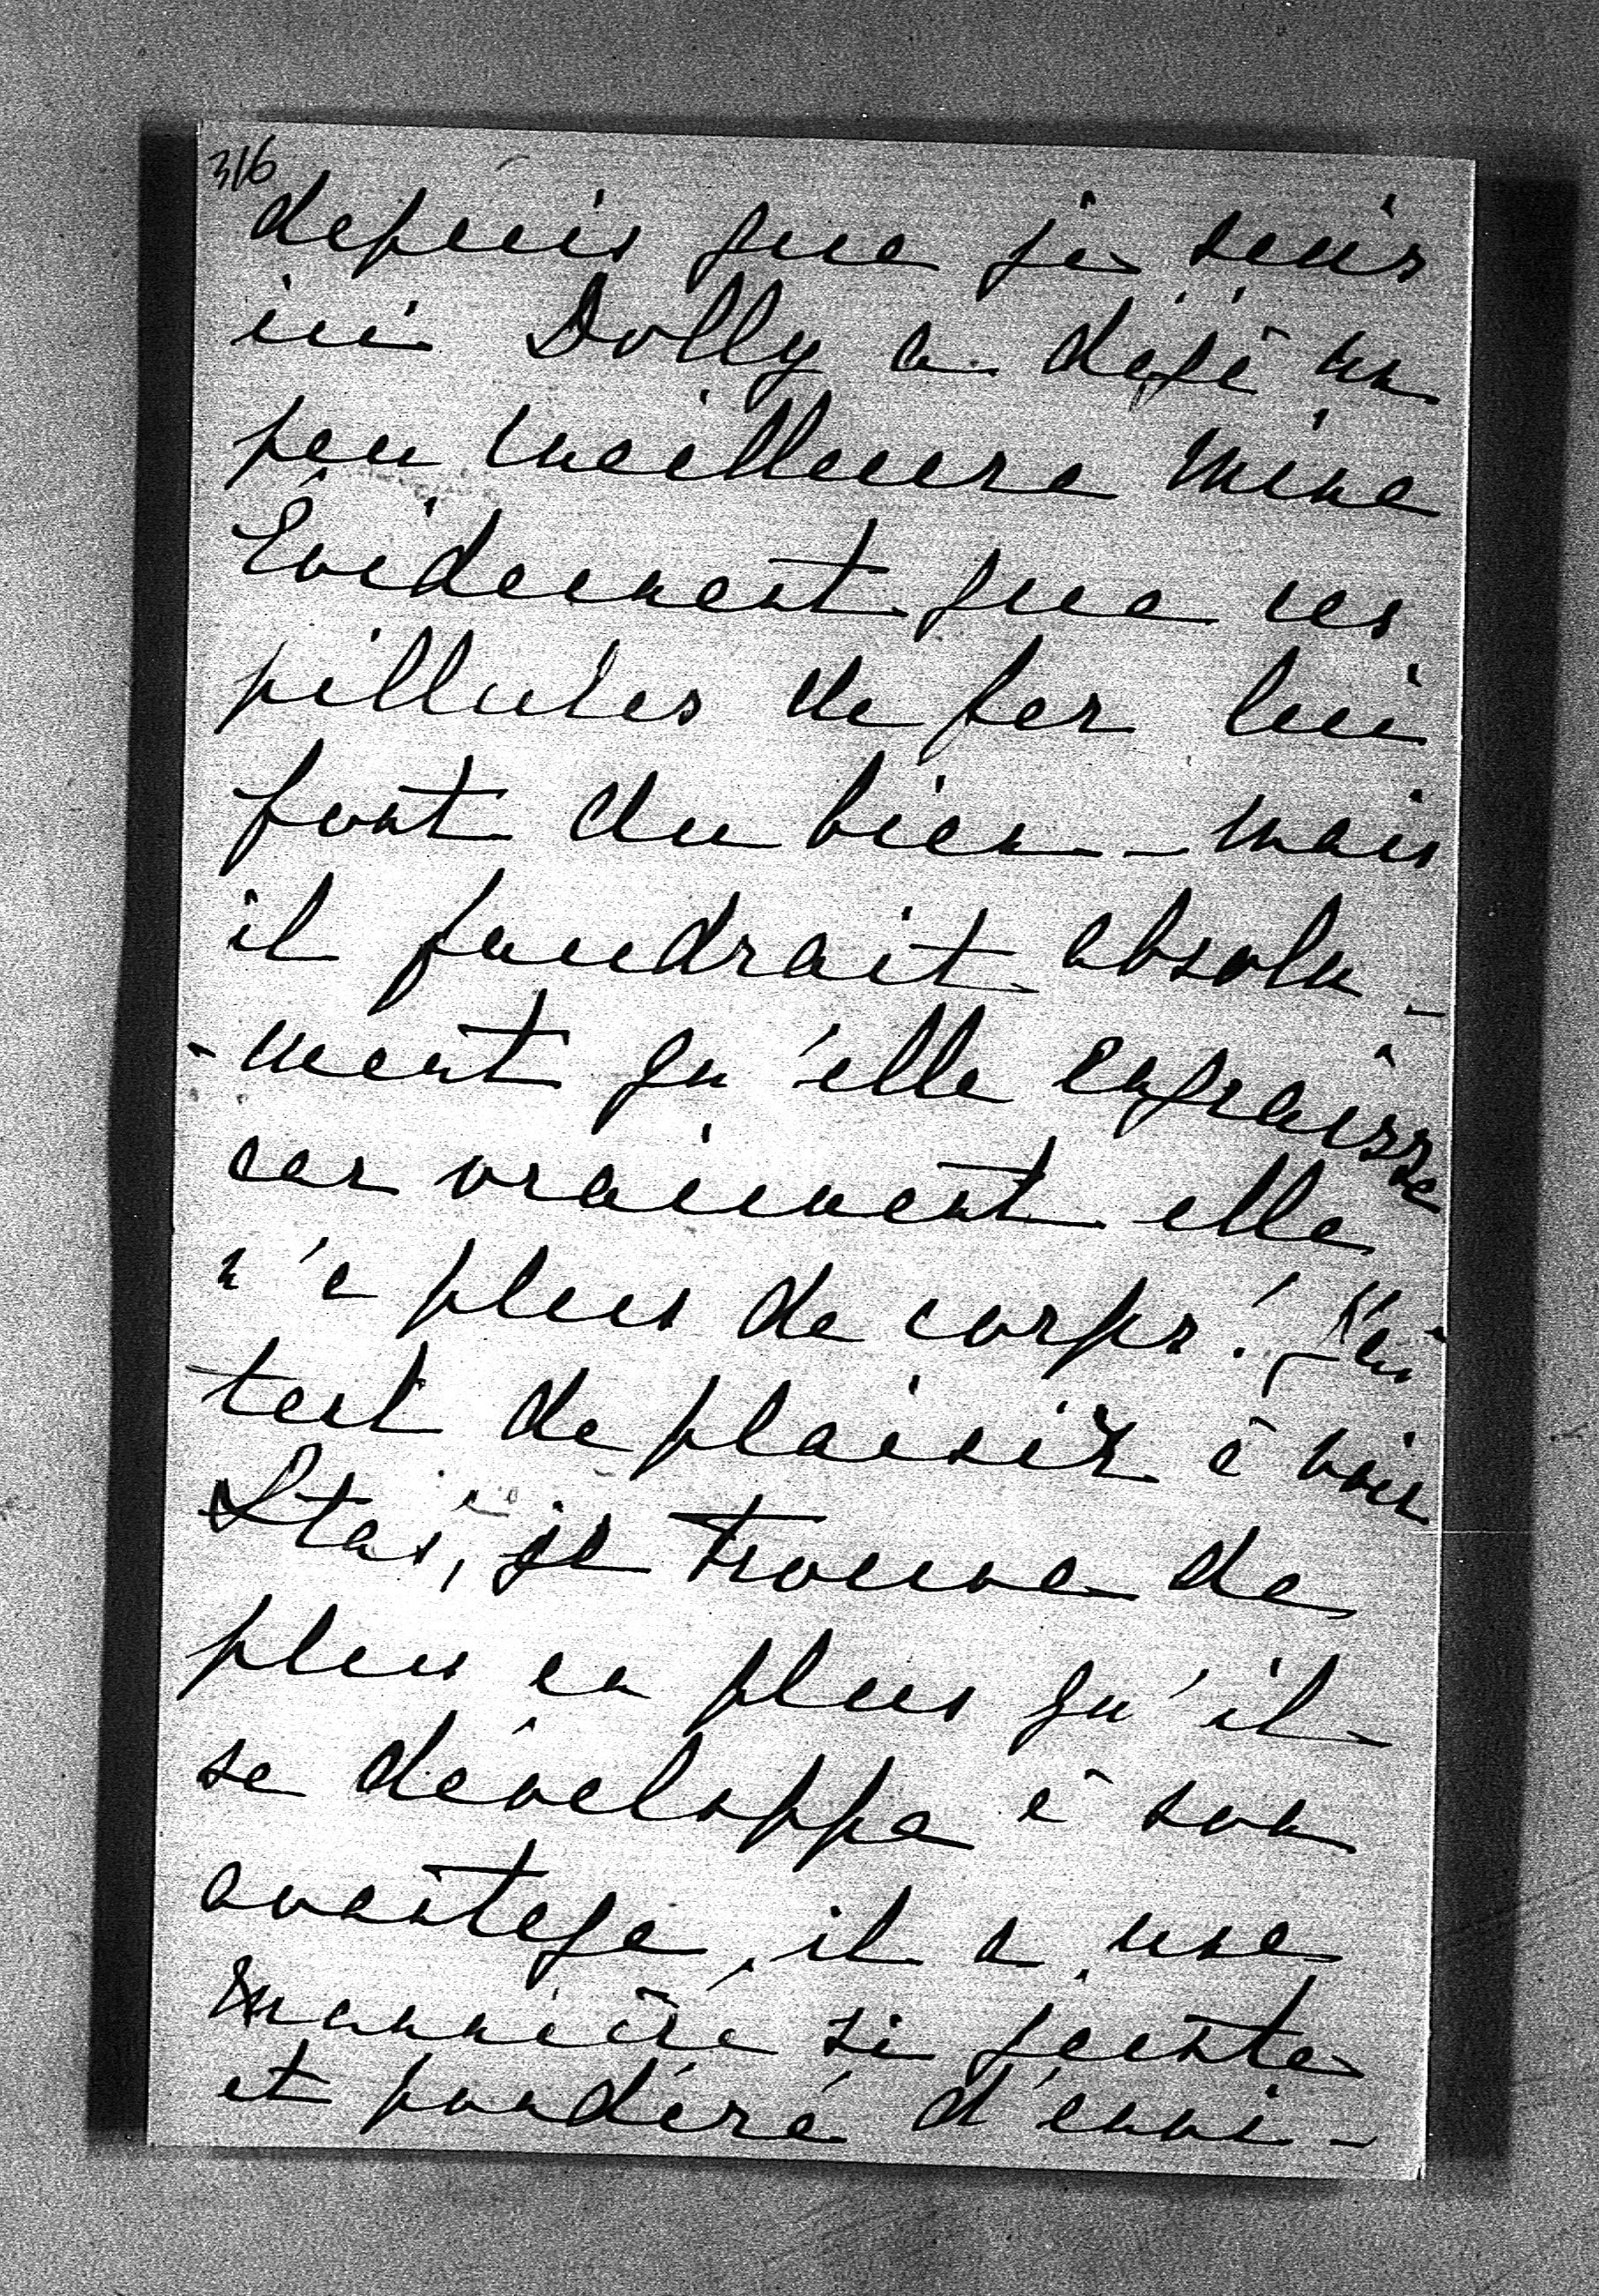 316
depuis que je suis
ici Dolly a déjà un
peu meilleure mine
Evidement que ces
pillules de fer lui
font du bien – mais
il faudrait absolu-
-ment qu'elle engraisse
car vraiment elle
n'a plus de corps! J'ai
tant de plaisir à voir
Stas, je trouve de
plus en plus qu'il
se développe à son
avantage, il a une
mannière si juste
et pondéré d'envi-